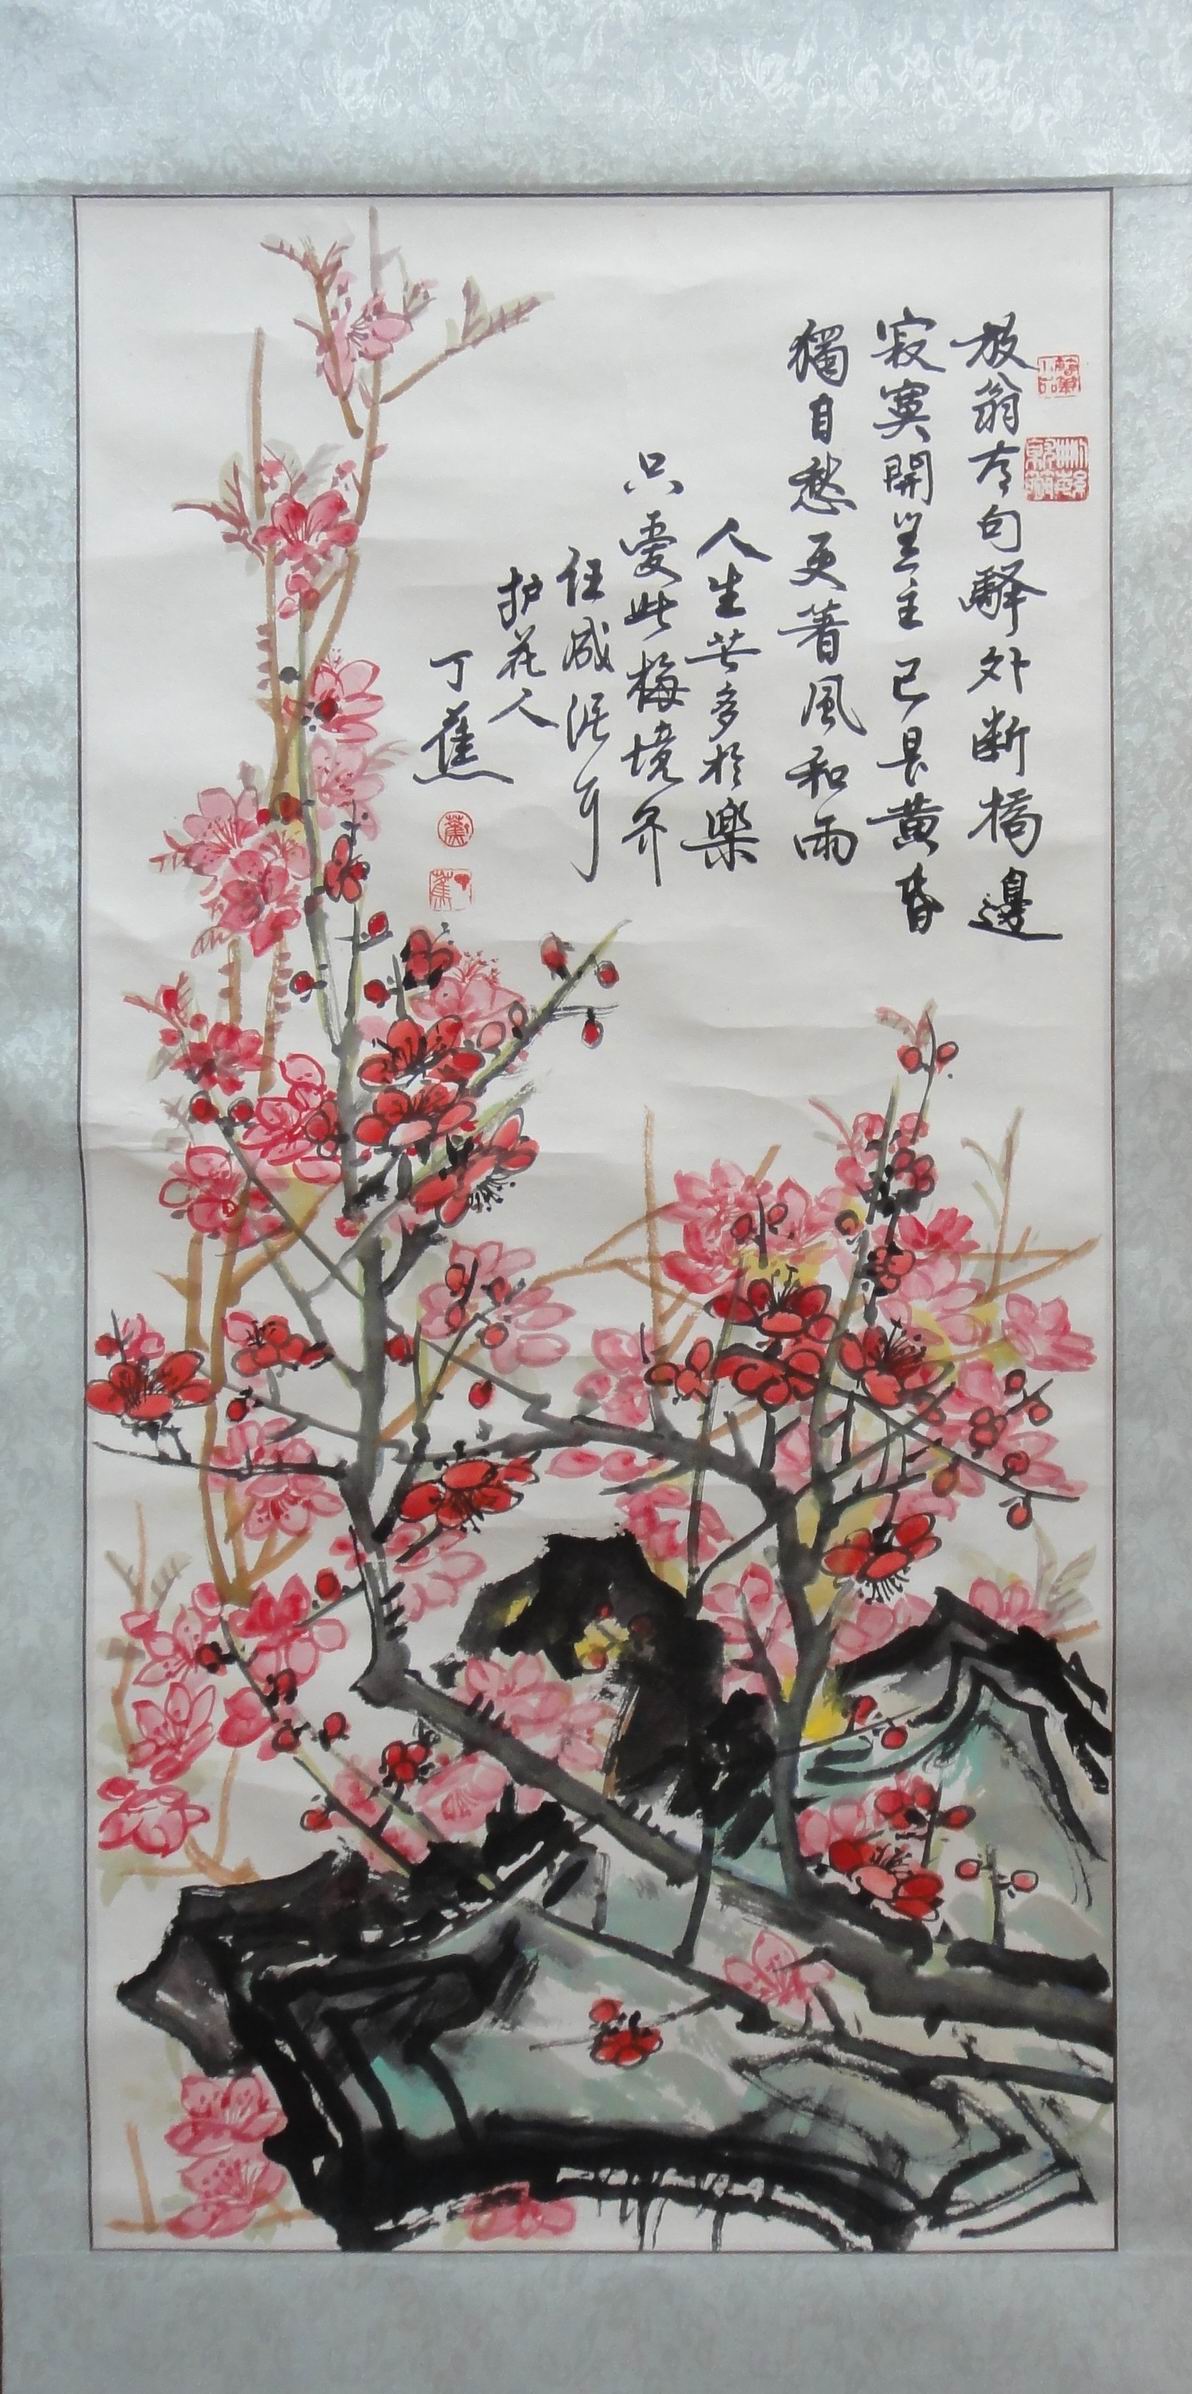 放翁有句驿外断橋邊
寂寞開無主已是黄昏
獨自愁更著風和雨
人生苦多於樂
只愛此梅境界
任咸泥耳
护花人
丁蕉
蕉
丁蕉